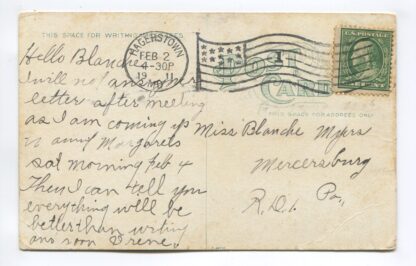 THIS SPACE FOR WRITING MESSAGES
Hello Blanche
I will not answer
letter after meeting
as I am coming up
Sat morning Feb 4
Then I can tell you
everything will be
better than writing
ans soon Irene
HAGERSTOWN
FEB 2
4-30P
19 11
MD.
1
POST
CARD
U.S. POSTAGE
THIS SPACE FOR ADDRESS ONLY
Miss Blanche Myers
Mercersburg
R.D.1. Pa.